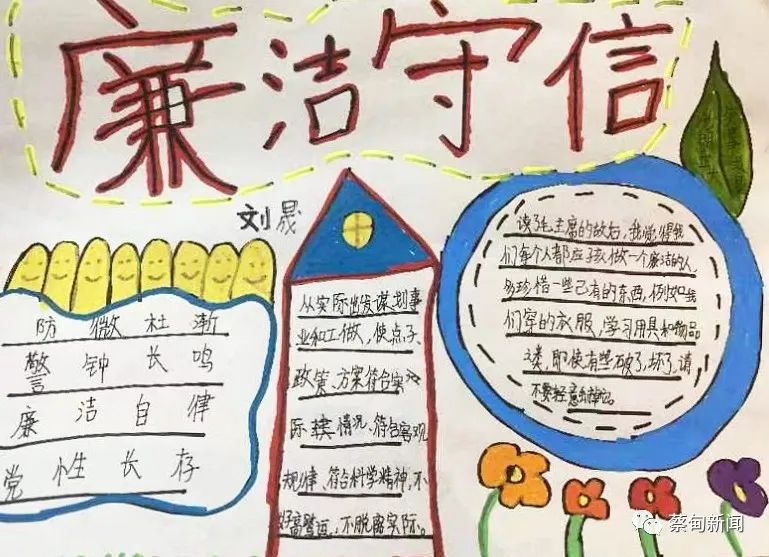 廉洁守信
刘晟
防微杜渐
警钟长鸣
廉洁自律
党性长存
从实际出发谋划事
业和工做，使点子、
政策、方案符合实
际情况、符合客观
规律、符合科学精神，不
好高骛远，不脱离实际。
读了毛主席的故后，我觉得我
们每个人都应该做一个廉洁的人，
多珍惜一些己有的东西，例如我
们穿的衣服，学习用具和物品
之类，即使有些破了，坏了，请
不要轻意扔掉它。
蔡甸新闻